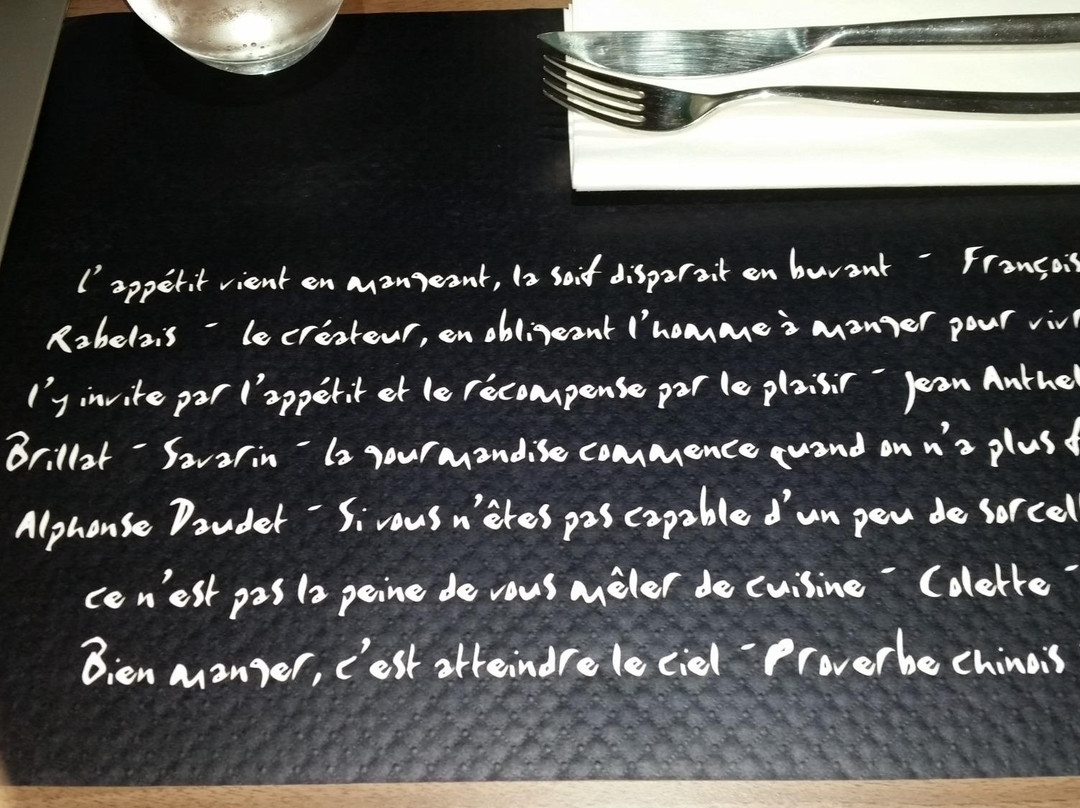 l'appétit vient en mangeant, la soif disparait en buvant - François
Rabelais - le créateur, en obligeant l'homme à manger pour
l'y invite par l'appétit et le récompense par le plaisir - Jean
Brillat - Savarin - la gourmandise commence quand on n'a plus
Alphonse Daudet - Si vous n'êtes pas capable d'un peu de
ce n'est pas la peine de vous mêler de cuisine - Colette -
Bien manger, c'est atteindre le ciel - Proverbe chinois